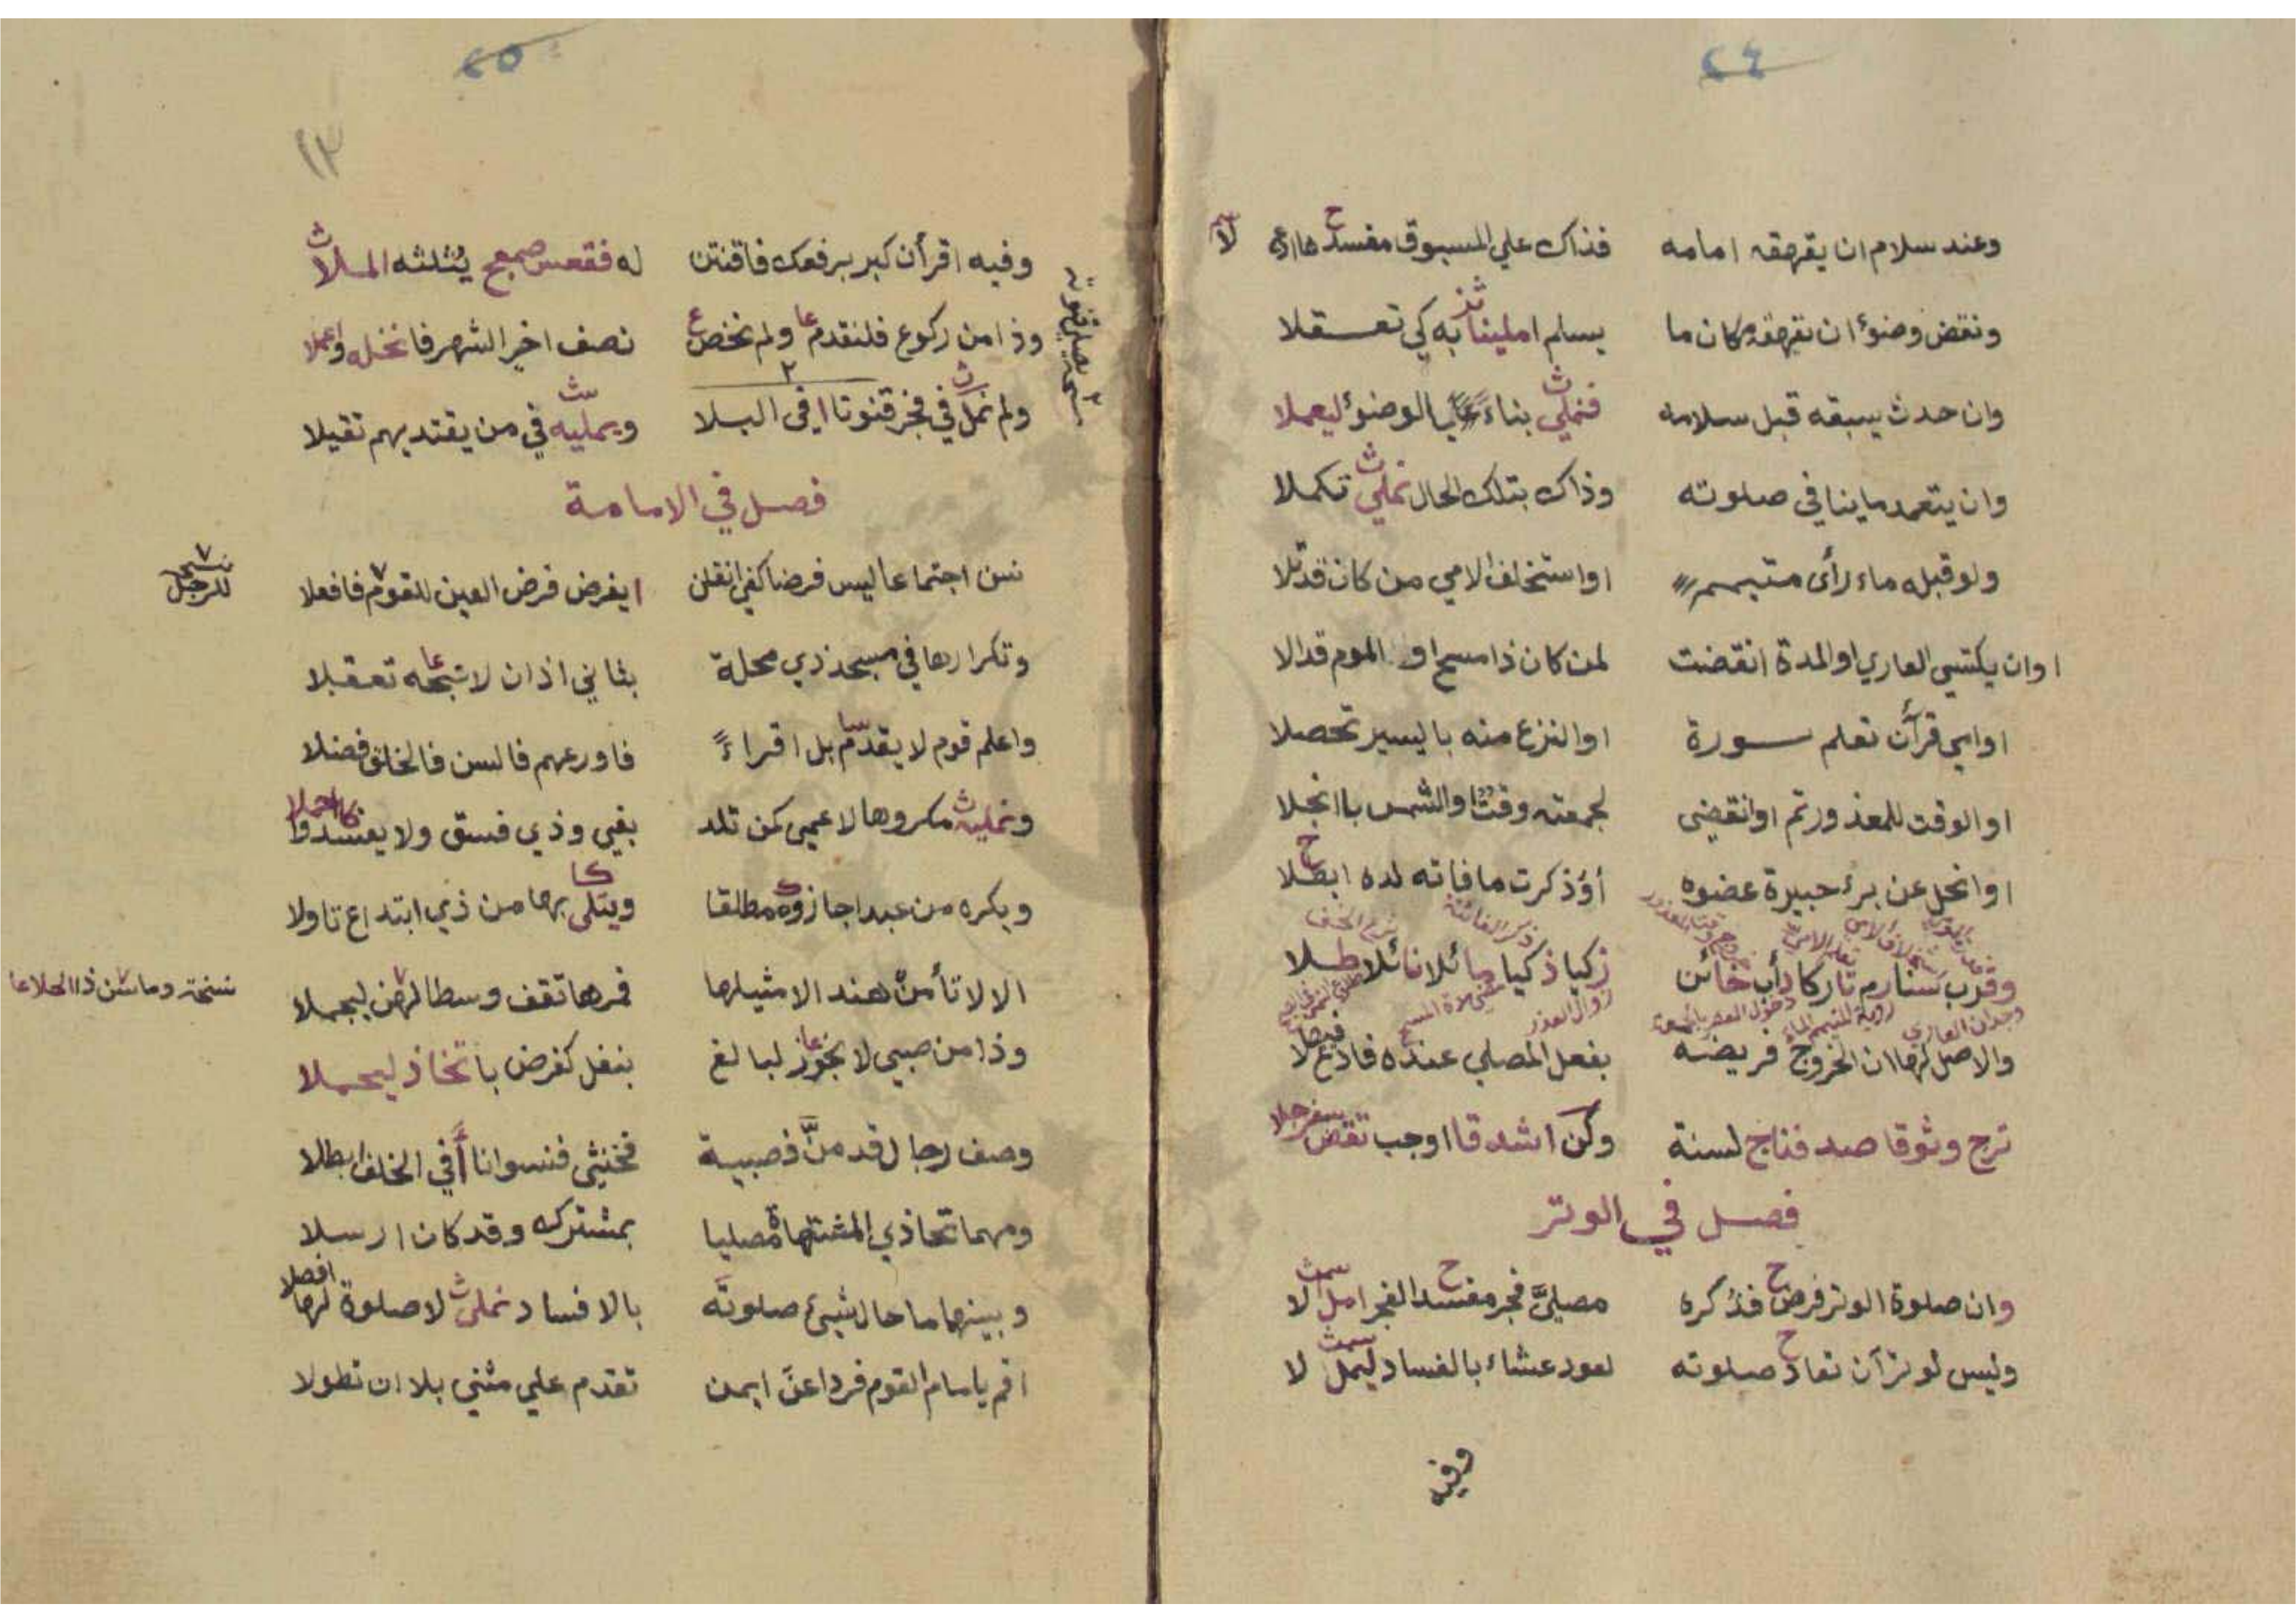 ٢٤
وعند سلام ان يقهقه امامه فذاك علي المسبوق مفسد
ونقض وضوء ان تقهقه مكان ما يسلم املينا به كي تعقلا
وان حدث يسبقه قبل سلامه فنملي بناءً بالوضوء ليعملا
وان يتعمد ما ينافي صلوته وذاك بتلك الحال نملي تكملا
ولو قبله ماء رأى متيمم او استخلف الامي من كان قد تلا
او ان يكتسي العاري او المدة انقضت لمن كان ذا مسح او الموم قد الا
او امي قرآن تعلم سورة او النزع منه باليسير تحصلا
او الوقت للمعذور تم او انقضى لجمعته وقت او الشمس باانجلا
او انحل عن برء جبيرة عضوه أو ذكرت ما فاته لده ابطلا
وقرب تاركا دأب خائن زكيا ذكيا مائلا نائلا طلا
والاصل لها ان الخروج فريضه بفعل المصلي عنده فادع
ترج وثوقا صد فتاج لسنة وكن اشدقا اوجب تقض سفرجلا
فصل في الوتر
وان صلوة الوتر فرض فذكره مصليَّ فجر مفسد الفجر امل الا
وليس لوتر أن تعاد صلوته لعود عشاء بالفساد ليمل لا
وفيه
٢٥
١٣
وفيه اقرأن كبر برفعك فاقنتن له فقعس صمعج يثلثه الملا
وذا من ركوع فلنقدم ولم نخص نصف اخير الشهر فانخله واعملا
ولم نمل في فجر قنوتا ا في البلا ويمليه في من يقتديهم تقيلا
فصل في الامامة
نسن اجتماعا ليس فرضا كفى انقلن ايفرض فرض العين للقوم فافعلا
نسخه للرجل
وتكرارها في مسجد ذي محلة بثاني اذان لا تبحه تعقلا
واعلم قوم لا يقدم بل اقراءً فاورعهم فالسن فالخلق فضلا
ونمليه مكروها لاعمى كمن تلد بغي وذي فسق ولا يفسدوا
ويكره من عبد اجازوه مطلقا ويتلى بها من ذي ابتداع تاولا
الا لا تأمن هند الا مثيلها فمرها تقف وسطا لهن ليجملا
نسخة وما سن ذا الحلاعا
وذا من صبي لا يجوز لبالغ بنفل كفرض باتخاذ ليحملا
وصف رجال قد منَّ فصبية فخنثى فنسوانا أفي الخلف ابطلا
ومهما تحاذي المشتهاة مصليا بمشترك وقد كان ارسلا
وبينهما ما حال شيئ صلوته بالافساد نملي لا صلوة لها افصلا
اقم يا امام القوم فردا عن ايمن تقدم علي مثنى بلا ان تطولا